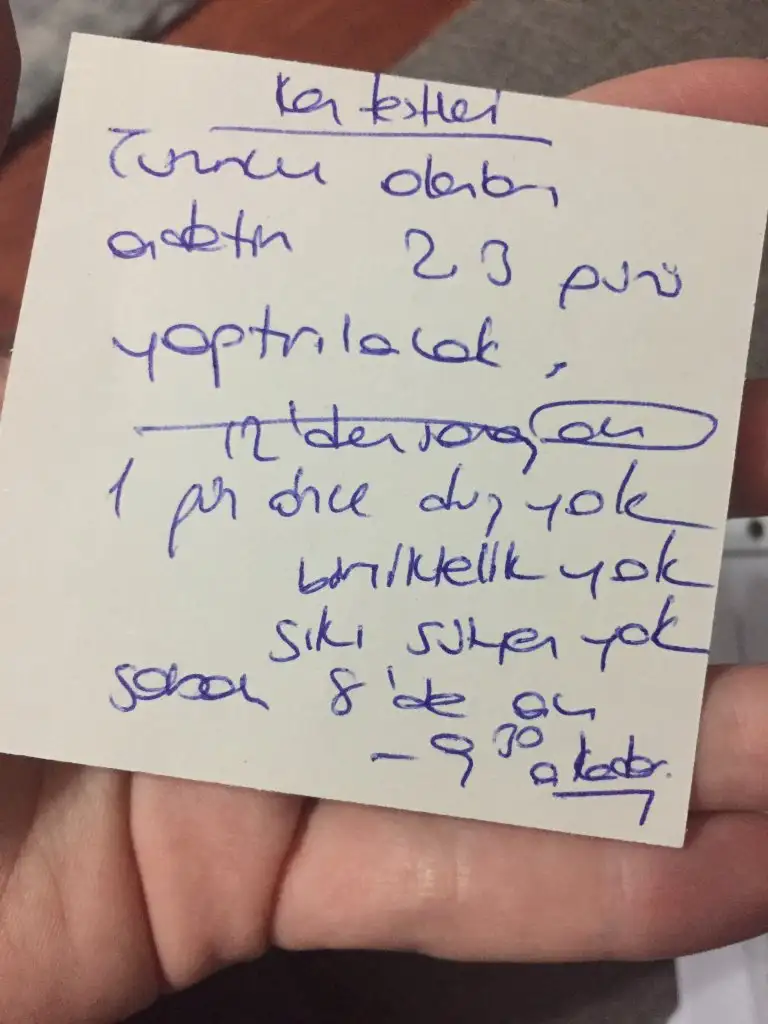 Kan testleri
olarak
adetin 2 3 günü
yaptırılacak.
12'den sonra aç
1 gün önce duş yok
birliktelik yok
sıkı sütyen yok
sabah 8'de aç
- 9 30 a kadar.